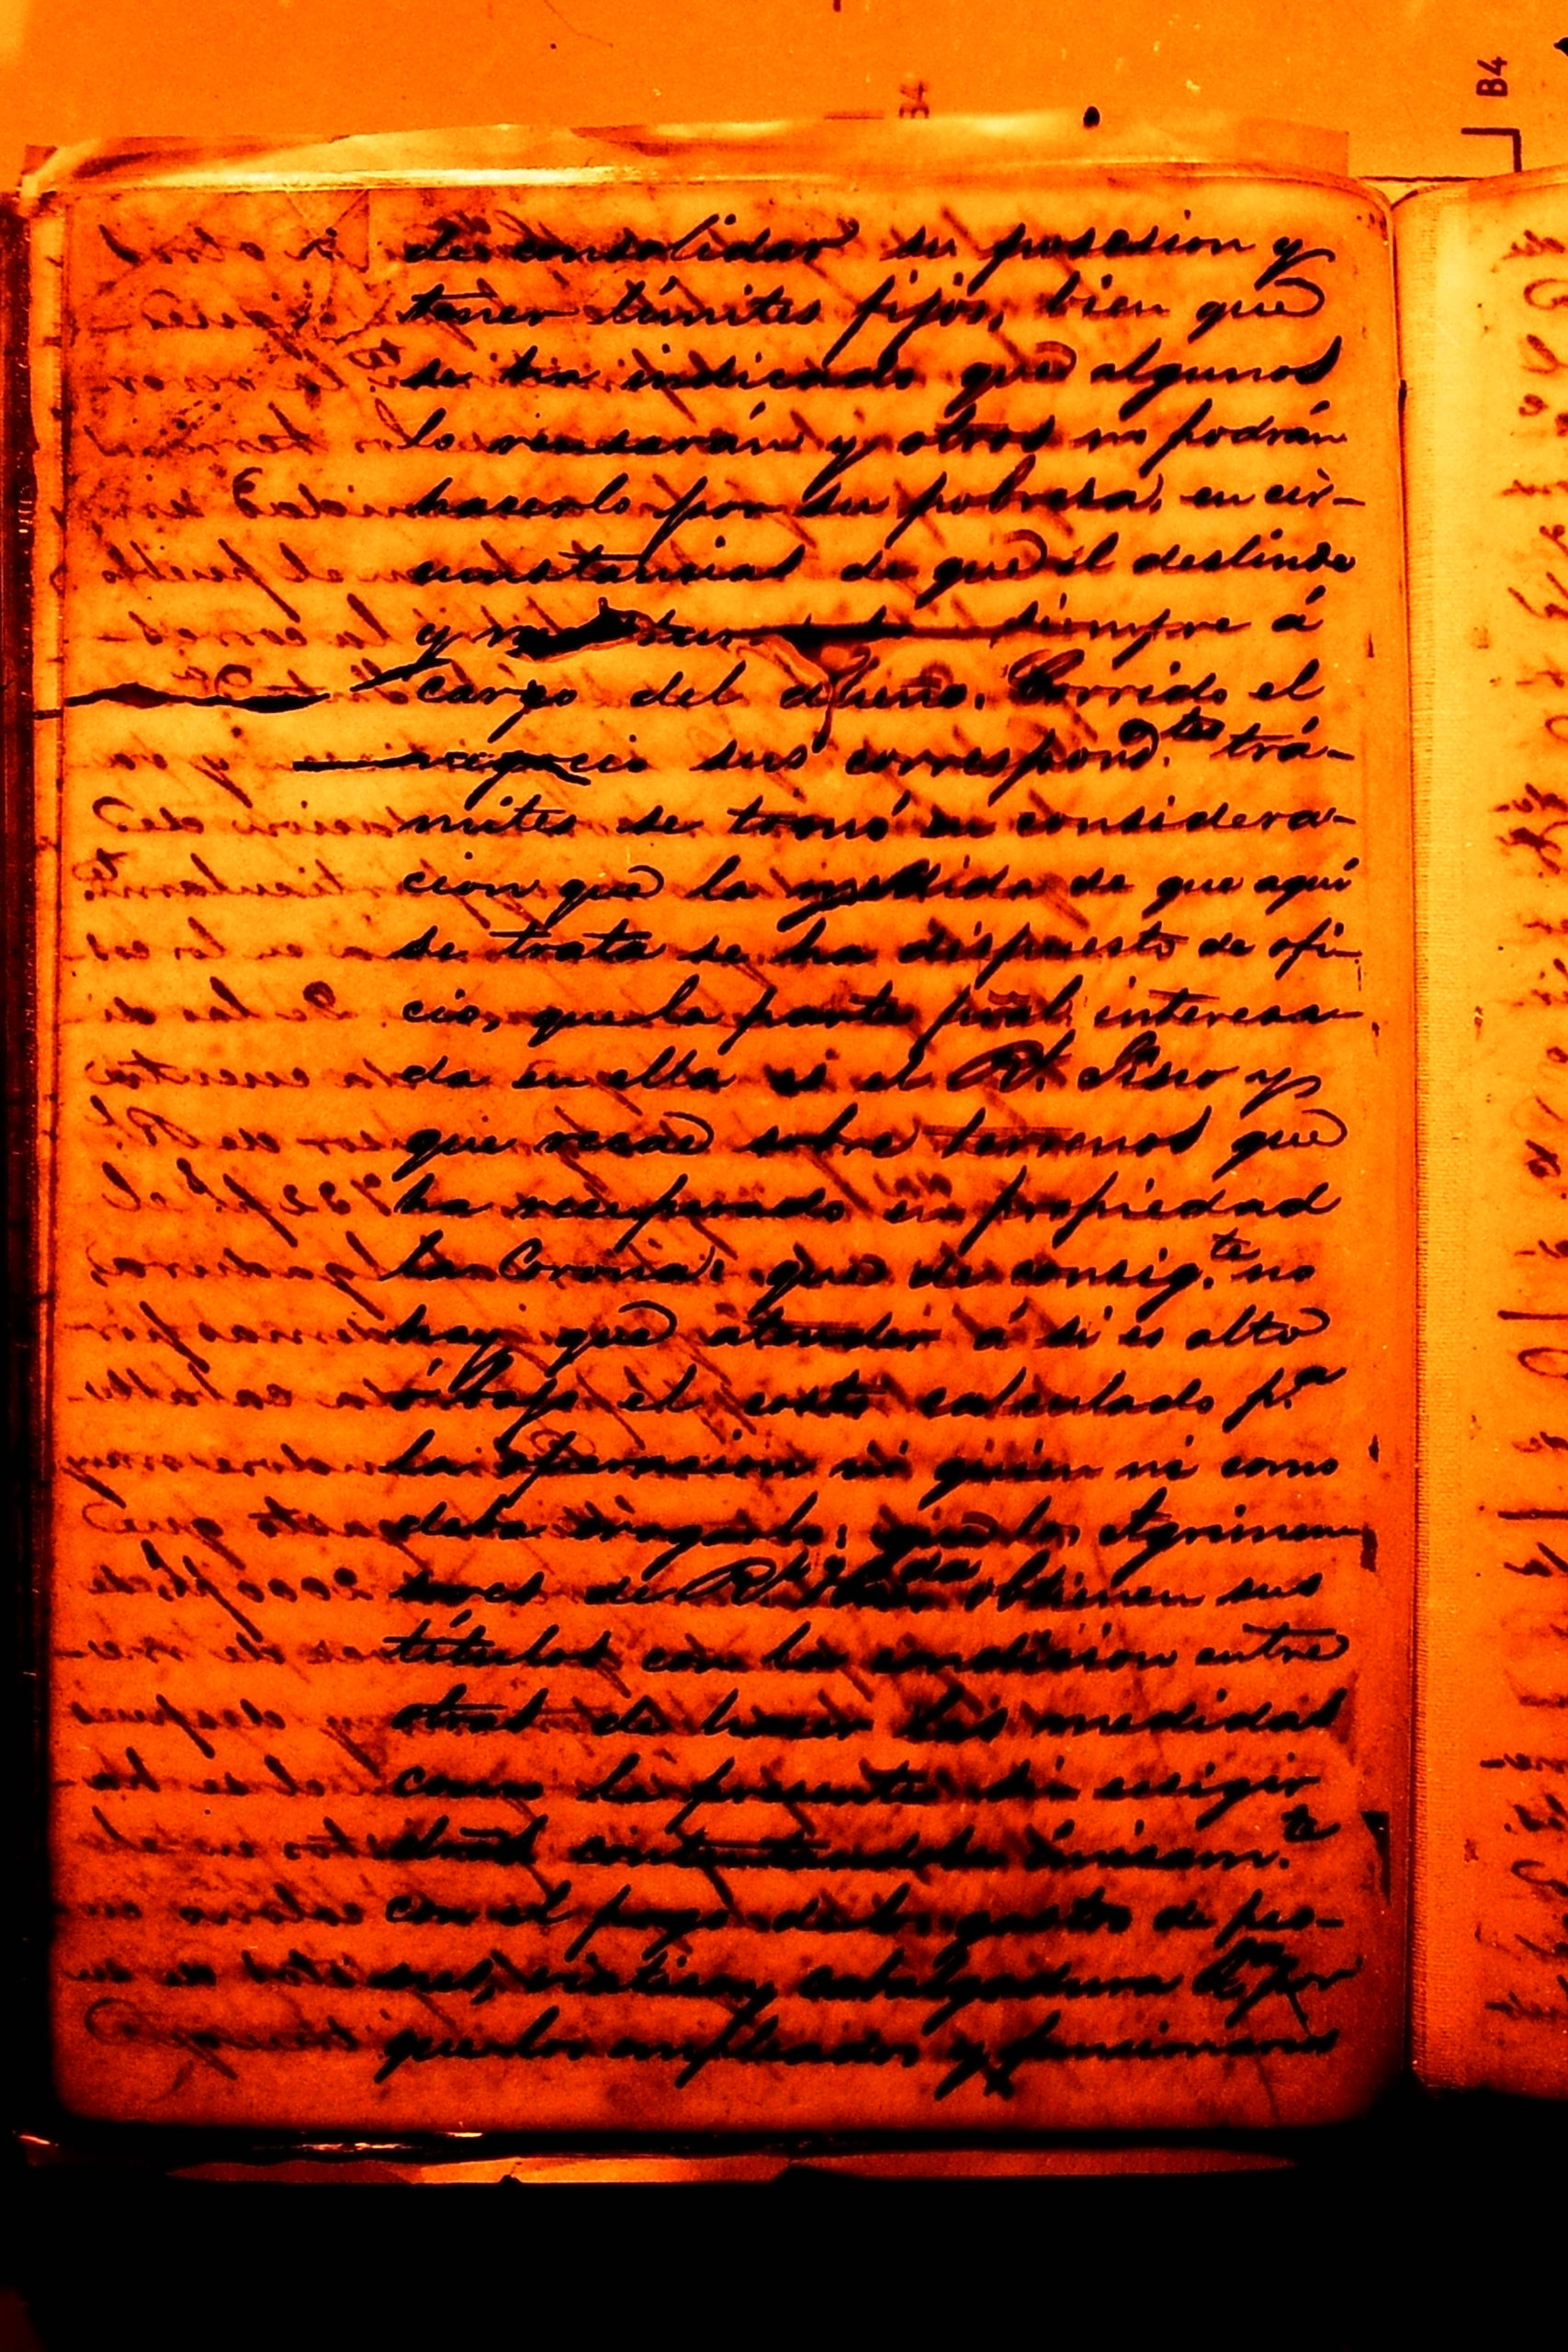 B4
B4
de consolidar su posesion y
tener límites fijos, bien que
se ha indicado que algunos
lo reusarán y otros no podrán
hacerlo por su pobresa, en cir-
cunstancias de que el deslinde
y siempre á
cargo del dueño. Corrido el
negocio sus correspond.tes trá-
mites se tomó en considera-
cion que la medida de que aquí
se trata se ha dispuesto de ofi-
cio, que la parte pral. interesa-
da en ella es el Rl. Fisco y
que recae sobre terrenos que
ha recuperado en propiedad
la Corona: que de consig.te no
hay que atender á si es alto
ó bajo el costo calculado p.a
la operacion ni quien ni como
deba : que los Agrimen-
sores de Rl. Hda. obtienen sus
títulos con la condicion entre
otras de hacer las medidas
como la presente sin exigir
dros. contentandose únicam.te
con el pago de los gastos de peo-
nes, cabalgadura &a. por
que los empleados y funcionarios